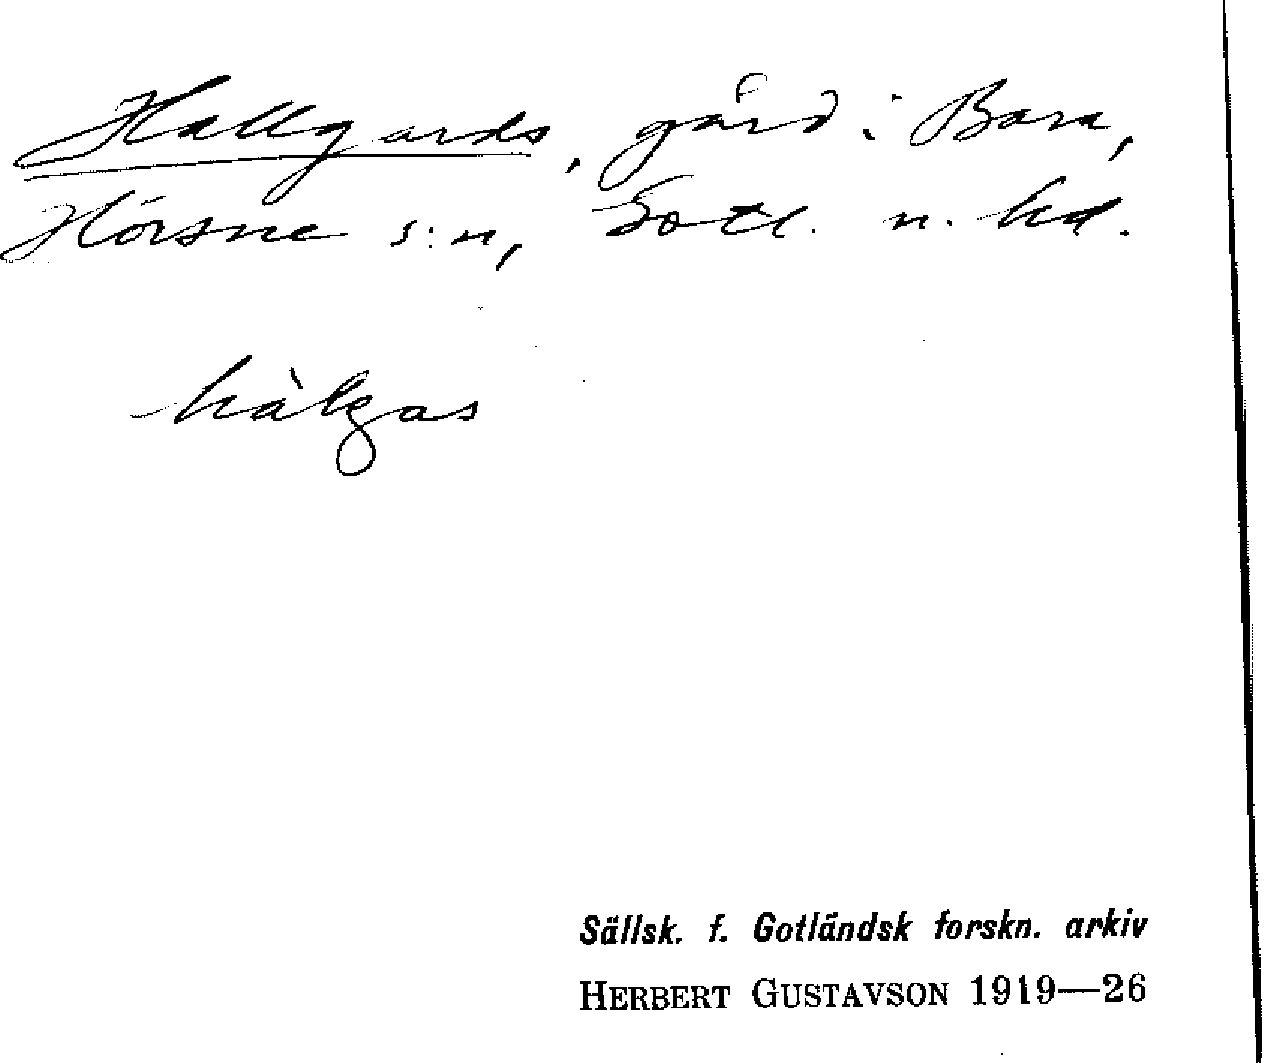 Hallgards, gård i Bara,
Hörsne s:n, Gotl. n. hd.
hàlgas
Sällsk. f. Gotländsk forskn. arkiv
HERBERT GUSTAVSON 1919—26